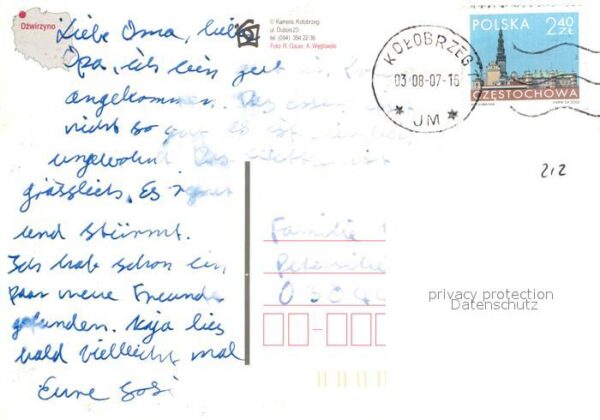 Dźwirzyno
© Kamera Kołobrzeg
ul. Dubois 23
tel. (094) 354 22 36
Foto: R. Gauer, A. Węglowski
POLSKA 2,40 ZŁ
CZĘSTOCHOWA
KOŁOBRZEG
03-08-07-16
* JM *
212
Liebe Oma, lieber
Opa, ich bin gut in
angekommen. Das essen
nicht so gut es ist
ungewohnt Das Wetter ist
grässlich. Es regnet
und stürmt.
Ich hab schon ein
paar neue Freunde
gefunden. Naja bis
bald vielleicht mal
Eure
Familie
privacy protection
Datenschutz